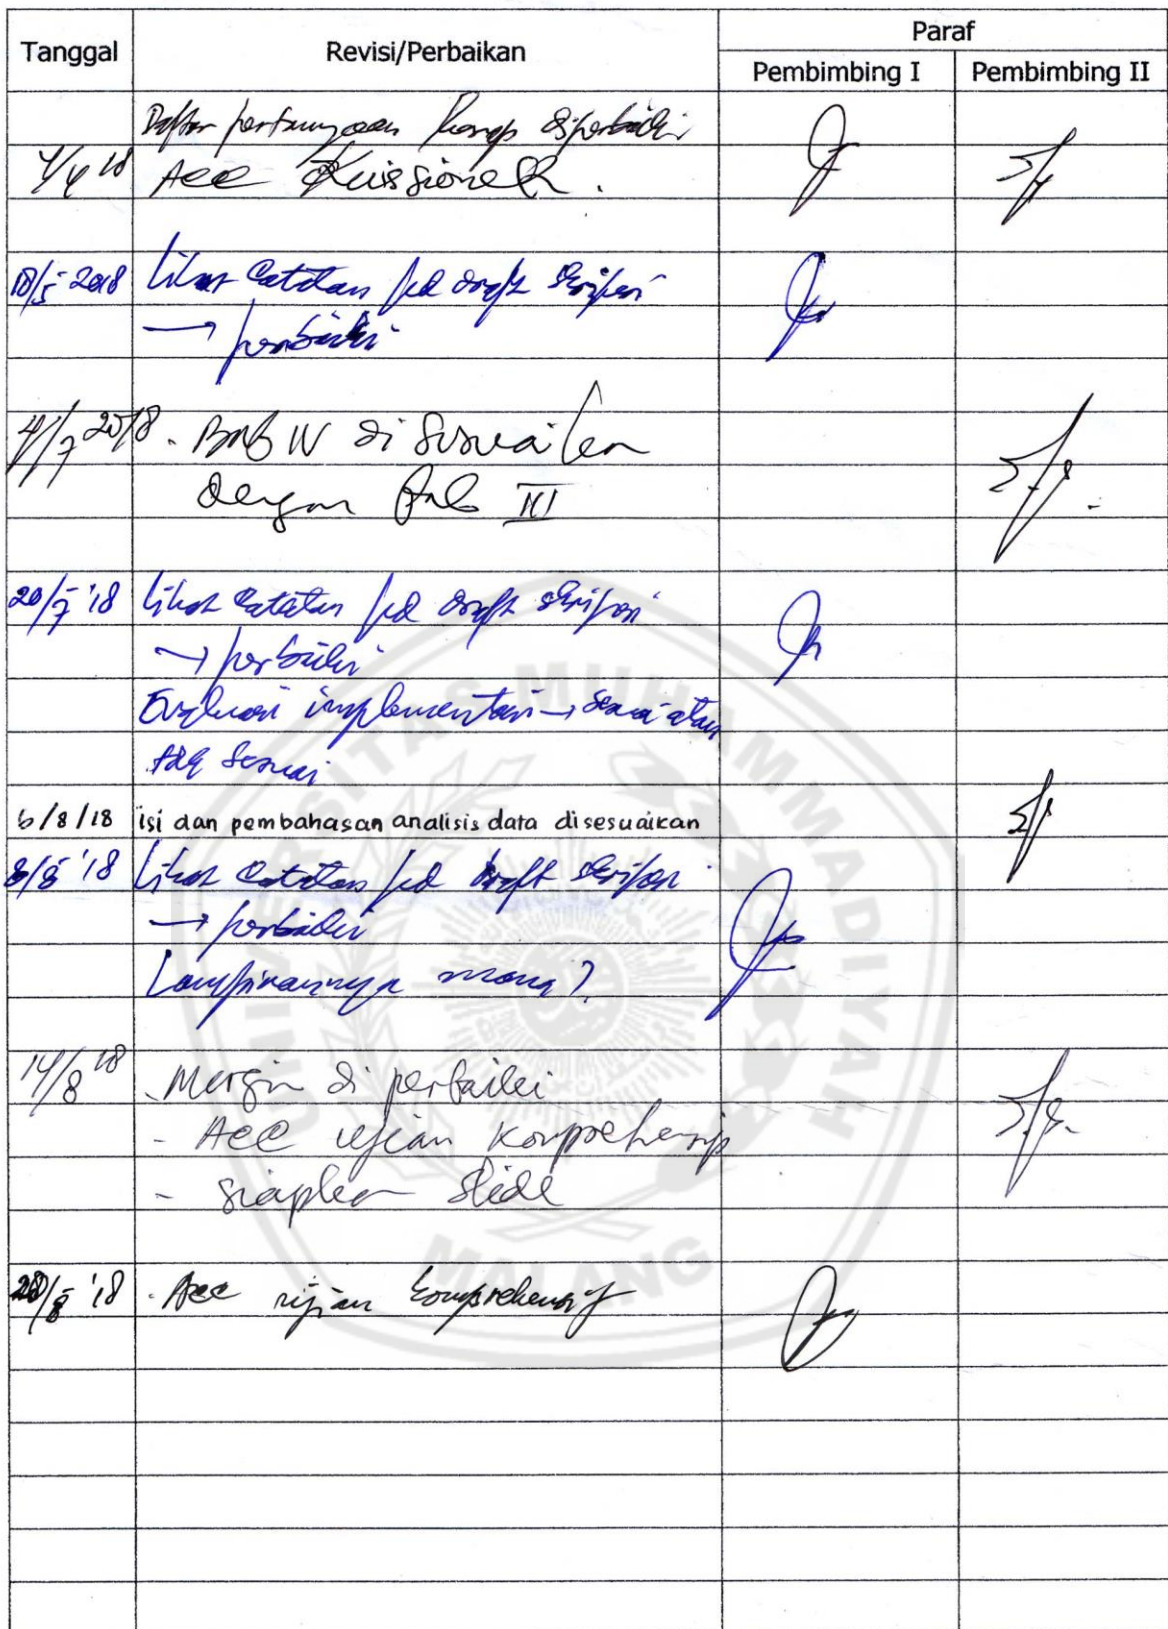 Tanggal Revisi/Perbaikan Paraf
Pembimbing I Pembimbing II
Daftar pertanyaan diperbaiki
4/4 18 Acc Kuissioner.
18/5 2018 Lihat Catatan pd draft skripsi
→ perbaiki
4/7 2018 - Bab IV di sesuaikan
dengan Bab III
20/7 '18 Lihat catatan pd draft skripsi
→ perbaiki
Evaluasi implementasi → sesuai atau
tdk sesuai
6/8/18 isi dan pembahasan analisis data disesuaikan
8/8 '18 Lihat Catatan pd draft skripsi
→ perbaiki
Lampirannya mana?
14/8 18 - Margin di perbaiki
- Acc ujian Komprehensip
- siapkan slide
28/8 '18 - Acc ujian komprehensif
UNIVERSITAS MUHAMMADIYAH
MALANG